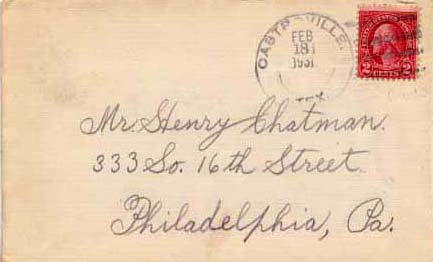 CASTROVILLE
FEB
18
1931
TEX.
2 CENTS 2
Mr. Henry Chatman.
333 So. 16th Street
Philadelphia, Pa.